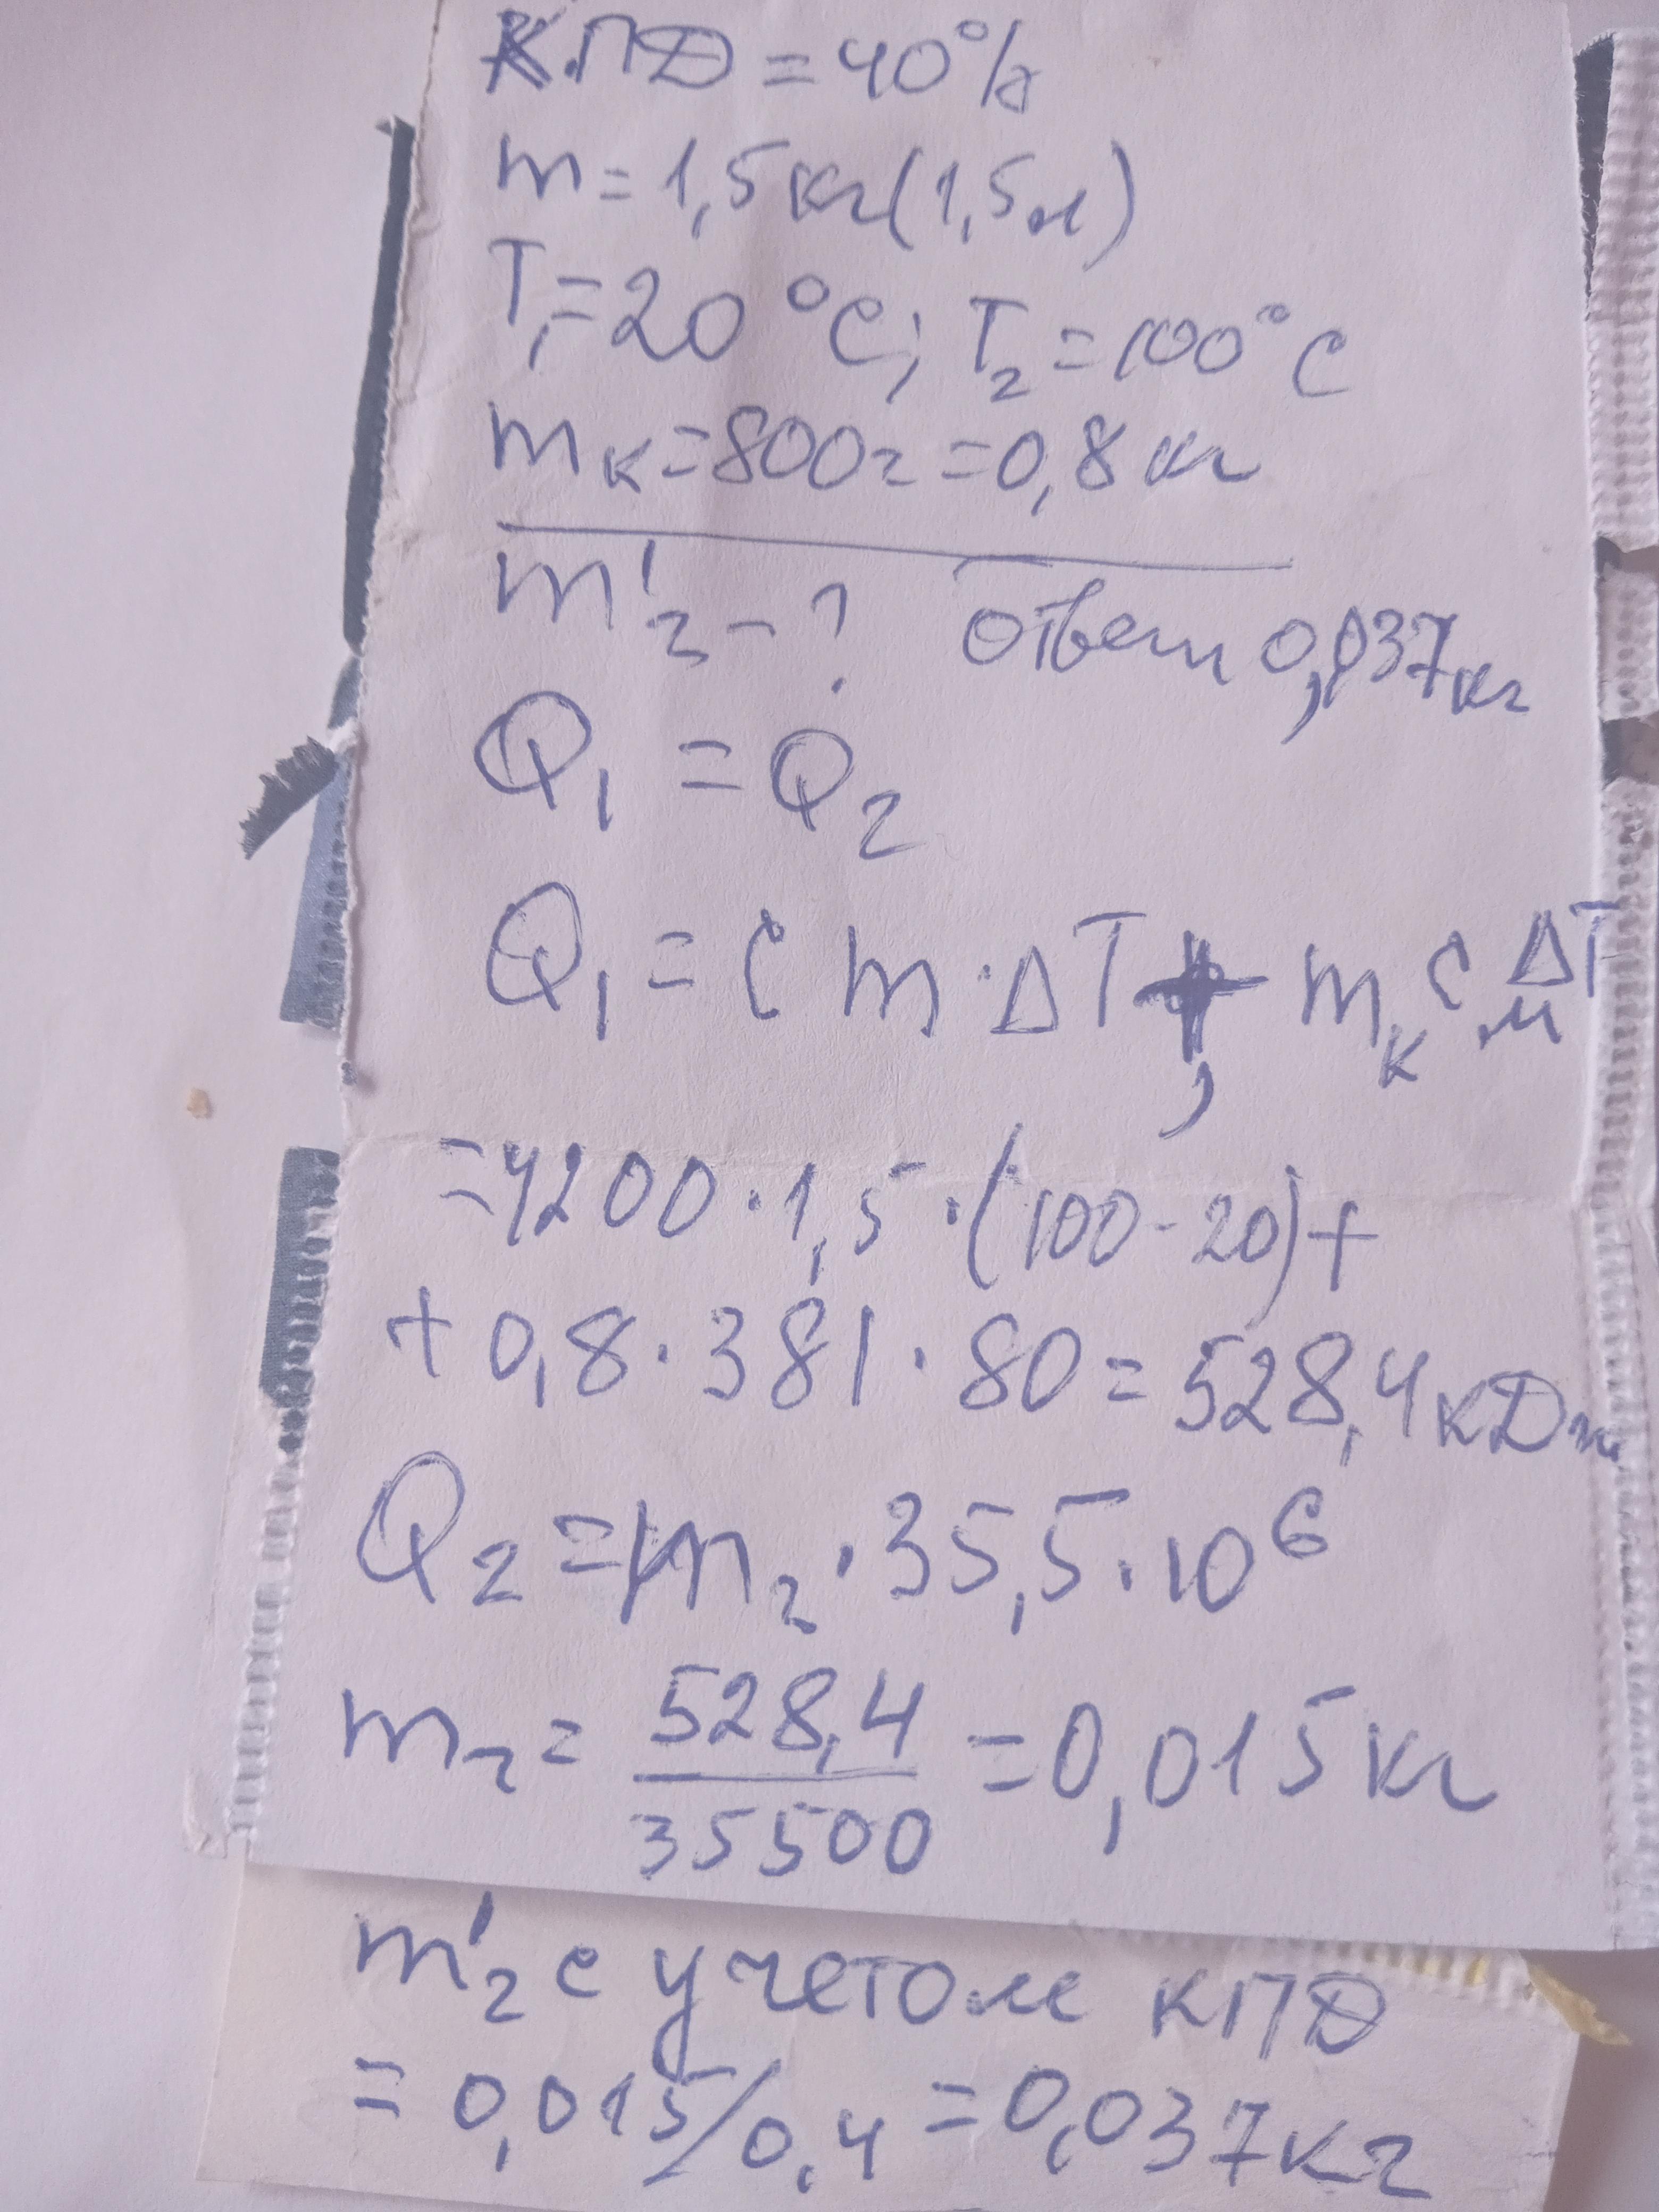 КПД = 40%
m = 1,5 кг (1,5 л)
T₁ = 20 °C; T₂ = 100 °C
mк = 800 г = 0,8 кг
m'₂ - ? ответ 0,037 кг
Q₁ = Q₂
Q₁ = c m · ΔT + mк cм ΔT
= 4200 · 1,5 · (100 - 20) +
+ 0,8 · 381 · 80 = 528,4 кДж
Q₂ = m₂ · 35,5 · 10⁶
m₂ = 528,4 / 35500 = 0,015 кг
m'₂ с учетом КПД
= 0,015/0,4 = 0,037 кг